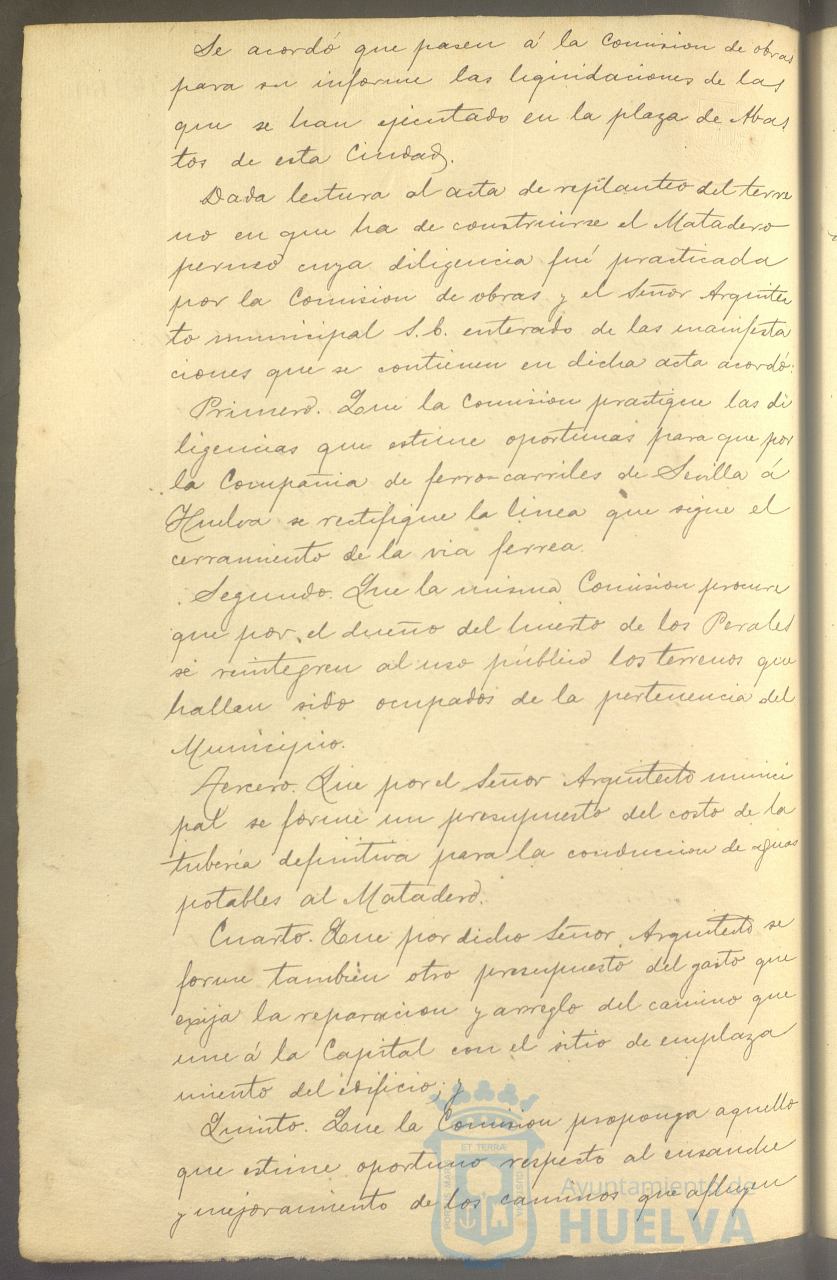 Se acordó que pasen á la Comision de obras
para su informe las liquidaciones de las
que se han ejecutado en la plaza de Abas
tos de esta Ciudad.
Dada lectura al acta de replanteo del terre
no en que ha de construirse el Matadero
perueo cuya diligencia fué practicada
por la Comision de obras y el Señor Arquitec
to municipal S.C. enterado de las manifesta
ciones que se contienen en dicha acta acordó:
Primero. Que la Comision practique las di
ligencias que estime oportunas para que por
la Compañia de ferro-carriles de Sevilla á
Huelva se rectifique la linea que sigue el
cerramiento de la via ferrea.
Segundo. Que la misma Comision procure
que por el dueño del huerto de los Perales
se reintegren al uso público los terrenos que
hallan sido ocupados de la pertenencia del
Municipio.
Tercero. Que por el Señor Arquitecto munici
pal se forme un presupuesto del costo de la
tubería definitiva para la conduccion de aguas
potables al Matadero.
Cuarto. Que por dicho Señor Arquitecto se
forme tambien otro presupuesto del gasto que
exija la reparacion y arreglo del camino que
une á la Capital con el sitio de emplaza
miento del edificio; y
Quinto. Que la Comision proponga aquello
que estime oportuno respecto al ensanche
y mejoramiento de los caminos que afluyen
ET TERRÆ
Ayuntamiento de
HUELVA